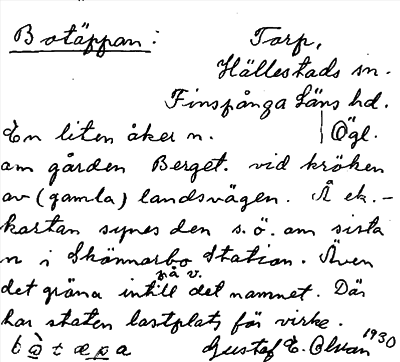 Botäppan:
Torp,
Hällestads sn.
Finspånga Läns hd.
Ögl.
En liten åker n.
om gården Berget. vid kröken
av (gamla) landsvägen. Å ek.-
kartan synes den s.ö. om sista
n i Skönnarbo Station. Även
det gröna intill det namnet. Där
på v.
har staten lastplats för virke.
Gustaf E. 1930